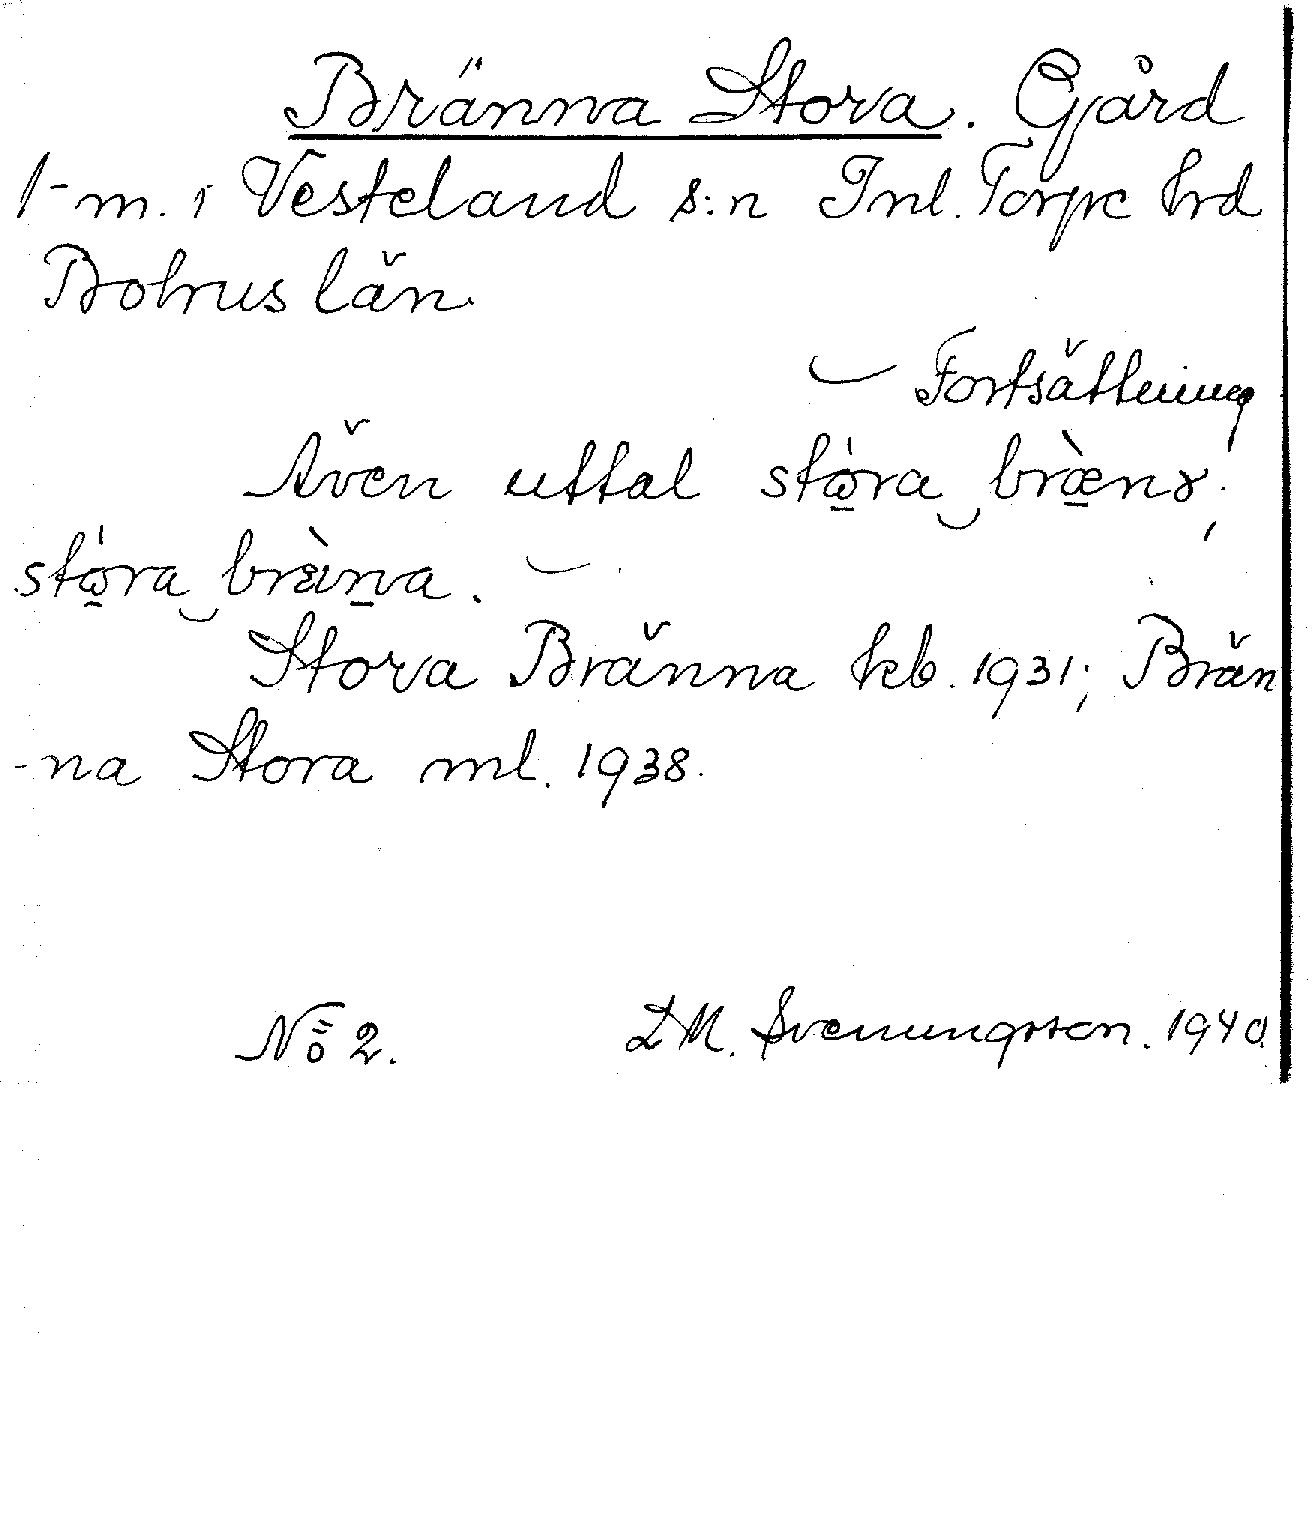 Bränna Stora. Gård
1-m. i Vesteland s:n Inl. Torpe hrd
Bohus län.
— Fortsättning
Även uttal stó̱ra‿bræ̱̀nɤ;
stó̱ra‿brɛ̀n̠a. —
Stora Bränna kb. 1931; Brän
-na Stora ml. 1938.
No 2. D M. Svenungsson. 1940